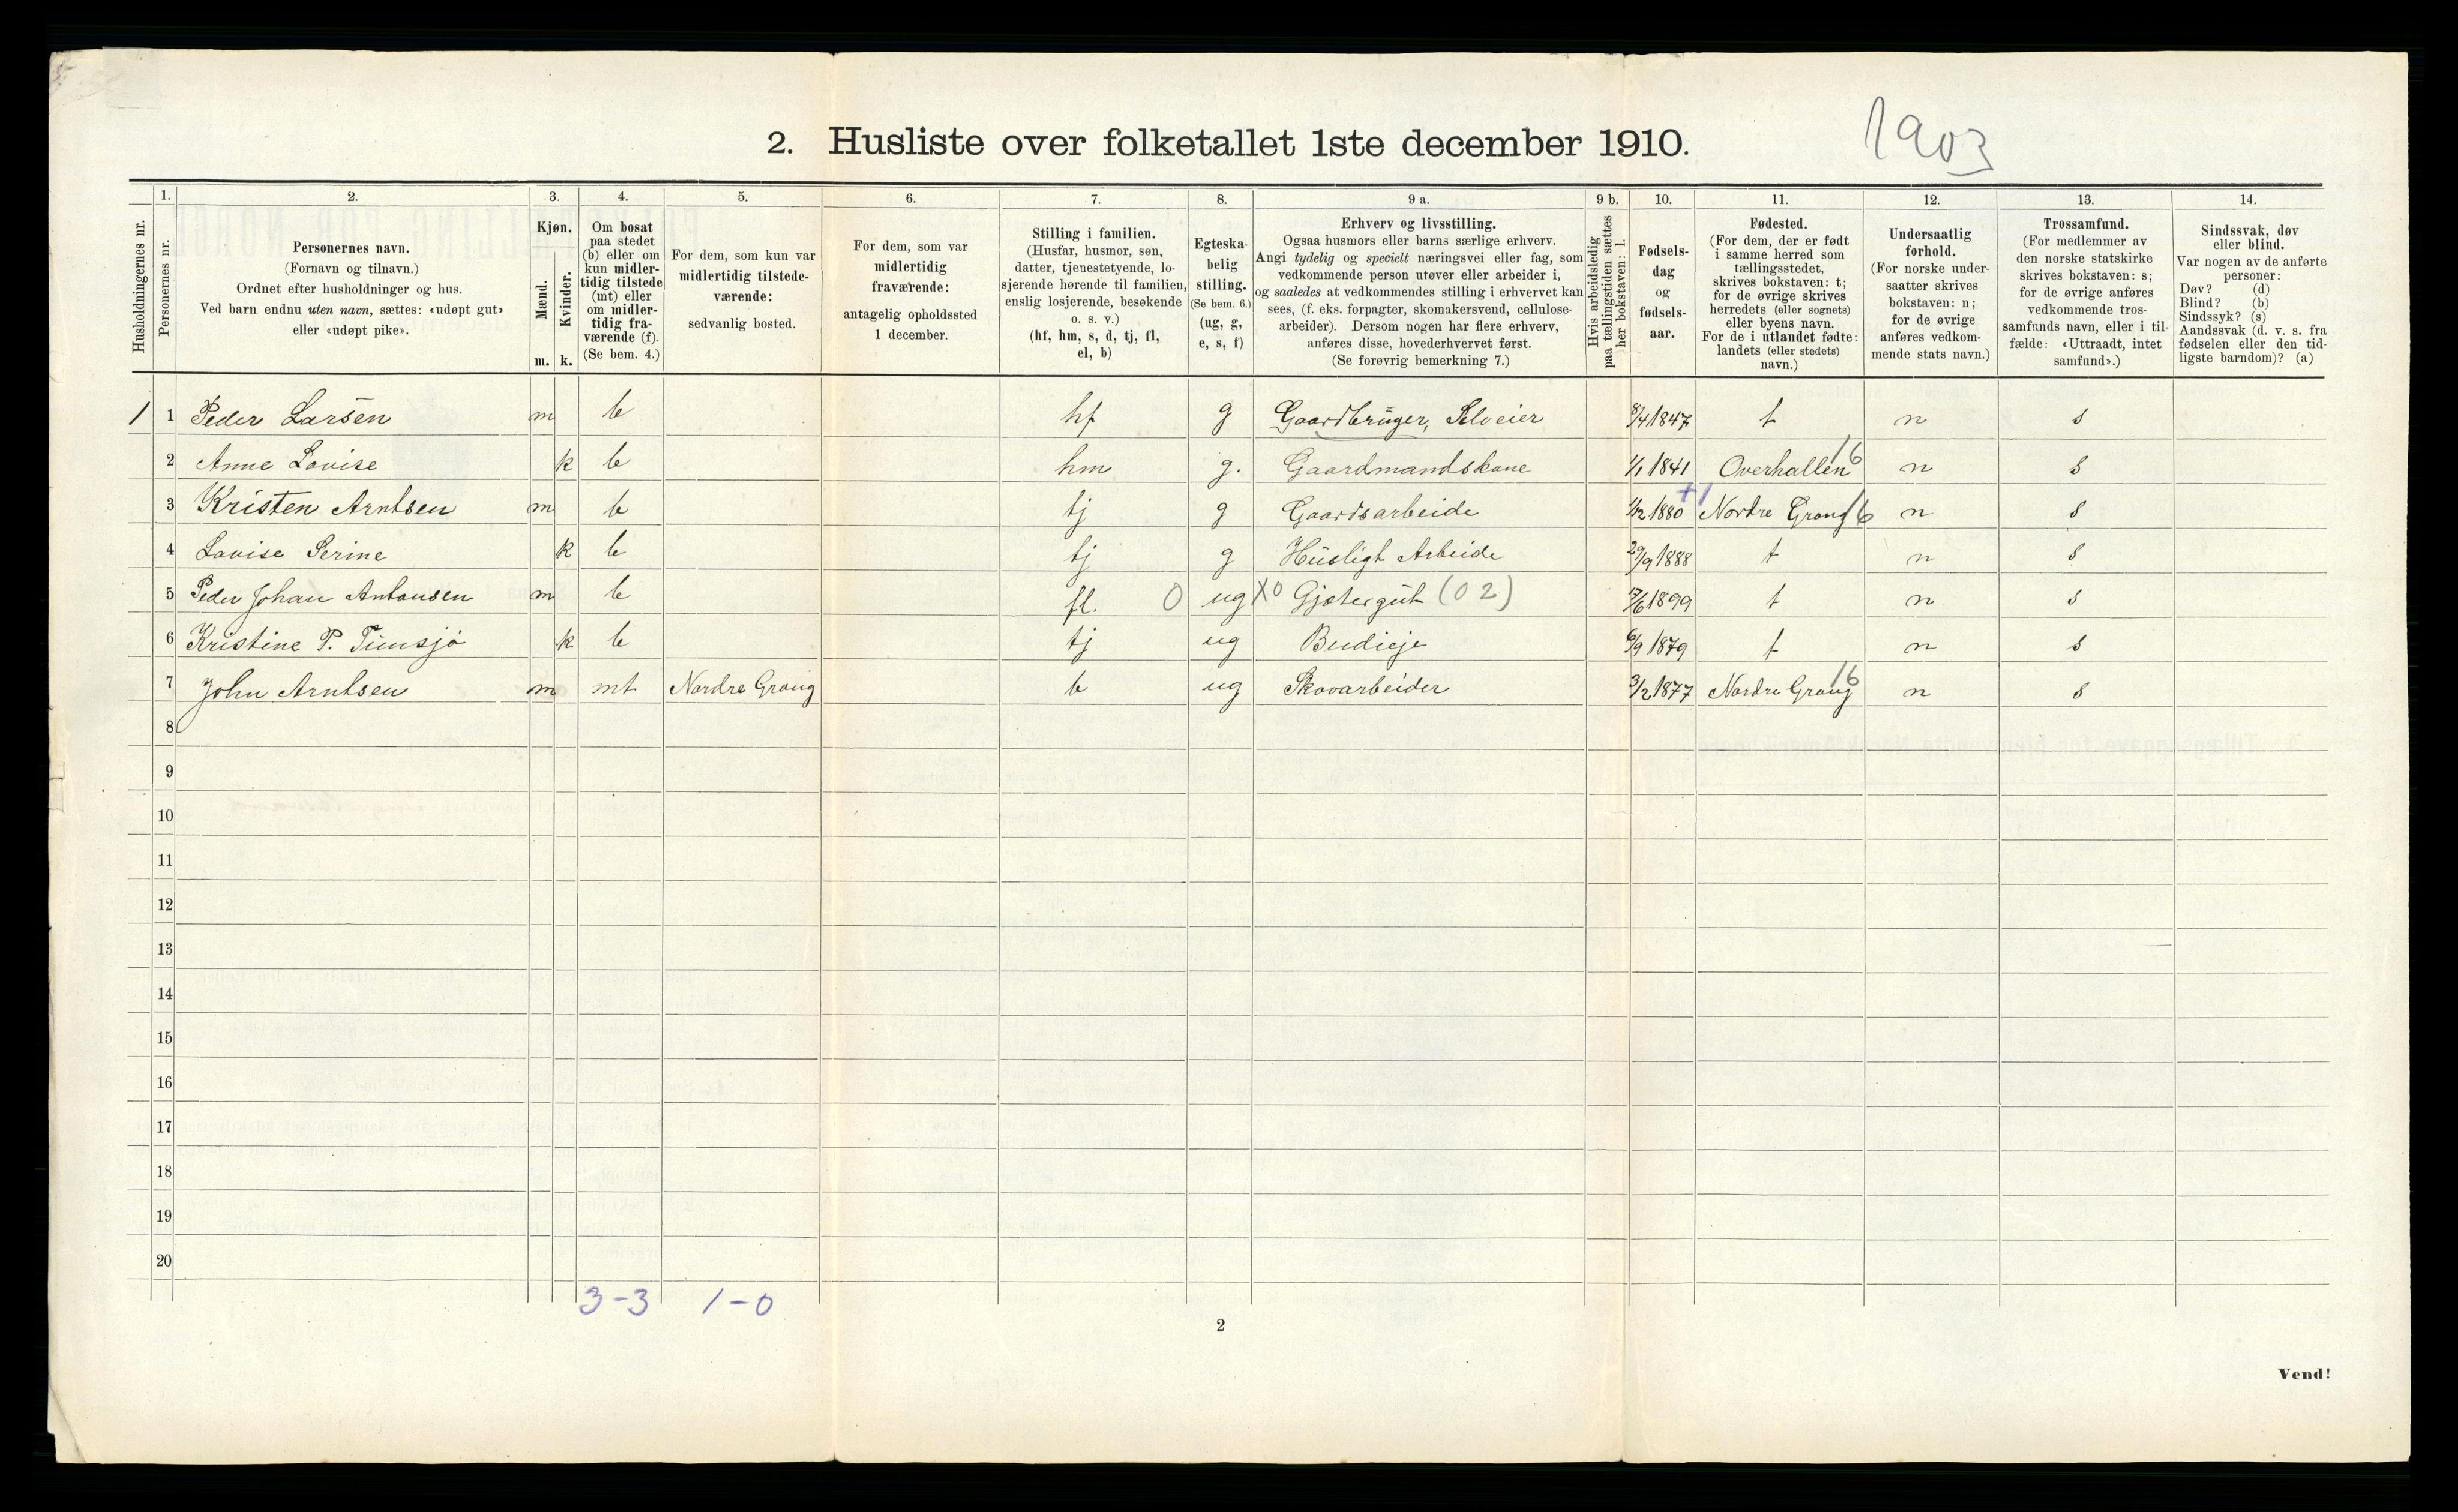 2. Husliste over folketallet 1ste december 1910.
1903
Husholdningernes nr.
1.
Personernes nr.
2.
Personernes navn.
(Fornavn og tilnavn.)
Ordnet efter husholdninger og hus.
Ved barn endnu uten navn, sættes: «udøpt gut»
eller «udøpt pike».
3.
Kjøn.
Mænd.
Kvinder.
m. k.
4.
Om bosat
paa stedet
(b) eller om
kun midler-
tidig tilstede
(mt) eller
om midler-
tidig fra-
værende (f).
(Se bem. 4.)
5.
For dem, som kun var
midlertidig tilstede-
værende:
sedvanlig bosted.
6.
For dem, som var
midlertidig
fraværende:
antagelig opholdssted
1 december.
7.
Stilling i familien.
(Husfar, husmor, søn,
datter, tjenestetyende, lo-
sjerende hørende til familien,
enslig losjerende, besøkende
o. s. v.)
(hf, hm, s, d, tj, fl,
el, b)
8.
Egteska-
belig
stilling.
(Se bem. 6.)
(ug, g,
e, s, f)
9 a.
Erhverv og livsstilling.
Ogsaa husmors eller barns særlige erhverv.
Angi tydelig og specielt næringsvei eller fag, som
vedkommende person utøver eller arbeider i,
og saaledes at vedkommendes stilling i erhvervet kan
sees, (f. eks. forpagter, skomakersvend, cellulose-
arbeider). Dersom nogen har flere erhverv,
anføres disse, hovederhvervet først.
(Se forøvrig bemerkning 7.)
9 b.
Hvis arbeidsledig
paa tællingstiden sættes
her bokstaven: l.
10.
Fødsels-
dag
og
fødsels-
aar.
11.
Fødested.
(For dem, der er født
i samme herred som
tællingsstedet,
skrives bokstaven: t;
for de øvrige skrives
herredets (eller sognets)
eller byens navn.
For de i utlandet fødte:
landets (eller stedets)
navn.)
12.
Undersaatlig
forhold.
(For norske under-
saatter skrives
bokstaven: n;
for de øvrige
anføres vedkom-
mende stats navn.)
13.
Trossamfund.
(For medlemmer av
den norske statskirke
skrives bokstaven: s;
for de øvrige anføres
vedkommende tros-
samfunds navn, eller i til-
fælde: «Uttraadt, intet
samfund».)
14.
Sindssvak, døv
eller blind.
Var nogen av de anførte
personer:
Døv? (d)
Blind? (b)
Sindssyk? (s)
Aandssvak (d. v. s. fra
fødselen eller den tid-
ligste barndom)? (a)
1 1 Peder Larsen m b hf g Gaardbruger, Selveier 8/4 1847 t n s
2 Anne Lovise k b hm g. Gaardmandskone 1/1 1841 Overhallen 16 n s
3 Kristen Arntsen m b tj g Gaardsarbeide 1/12 1880 +1 Nordre Grong 16 n s
4 Lovise Serine k b tj g Husligt Arbeide 29/9 1888 t n s
5 Peder Johan Antonsen m b fl. 0 ug X0 Gjætergut (02) 7/6 1899 t n s
6 Kristine P. Tunsjø k b tj ug Budieje 6/9 1879 t n s
7 John Arntsen m mt Nordre Grong b ug Skovarbeider 3/2 1877 Nordre Grong 16 n s
8
9
10
11
12
13
14
15
16
17
18
19
20
3-3 1-0
2
Vend!